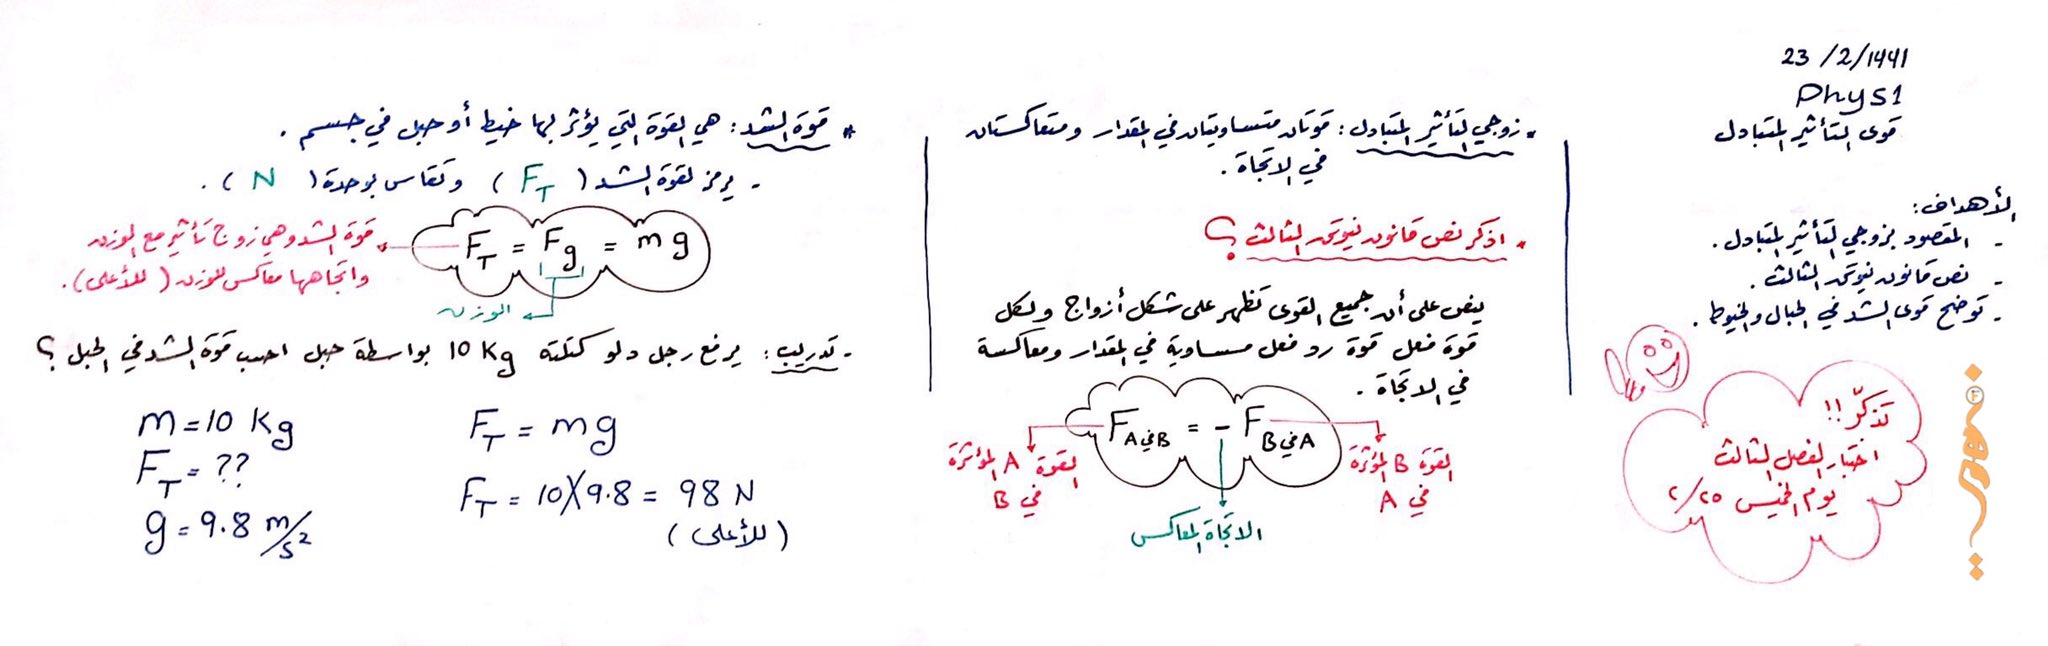 23/2/1441
Phys1
قوى التأثير المتبادل
الأهداف:
- المقصود بزوجي التأثير المتبادل.
- نص قانون نيوتن الثالث.
- توضح قوى الشد في الحبال والخيوط.
تذكّر!!
اختبار الفصل الثالث
يوم الخميس 2/25
* زوجي التأثير المتبادل: قوتان متساويتان في المقدار ومتعاكستان
في الاتجاة.
* اذكر نص قانون نيوتن الثالث؟
ينص على أن جميع القوى تظهر على شكل أزواج ولكل
قوة فعل قوة رد فعل مساوية في المقدار ومعاكسة
في الاتجاة.
F A في B = - F B في A
القوة A المؤثرة
في B
القوة B المؤثرة
في A
الاتجاة المعاكس
* قوة الشد: هي القوة التي يؤثر بها خيط أو حبل في جسم.
- يرمز لقوة الشد (F_T) وتقاس بوحدة (N).
F_T = F_g = mg
قوة الشد وهي زوج تأثير مع الوزن
واتجاهها معاكس للوزن (للأعلى).
الوزن
- تدريب: يرفع رجل دلو كتلته 10 Kg بواسطة حبل احسب قوة الشد في الحبل؟
m = 10 Kg
F_T = ??
g = 9.8 m/s²
F_T = mg
F_T = 10X9.8 = 98 N
(للأعلى)